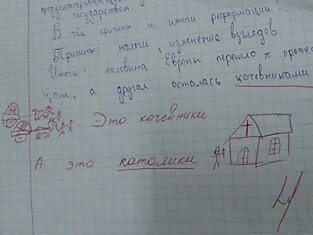 государством.
В чём причины и итоги реформации?
Причины: налоги, изменение взглядов
Итоги: половина Европы перешло к протес
там, а другая осталась кочевниками
Это кочевники
А это католики
4